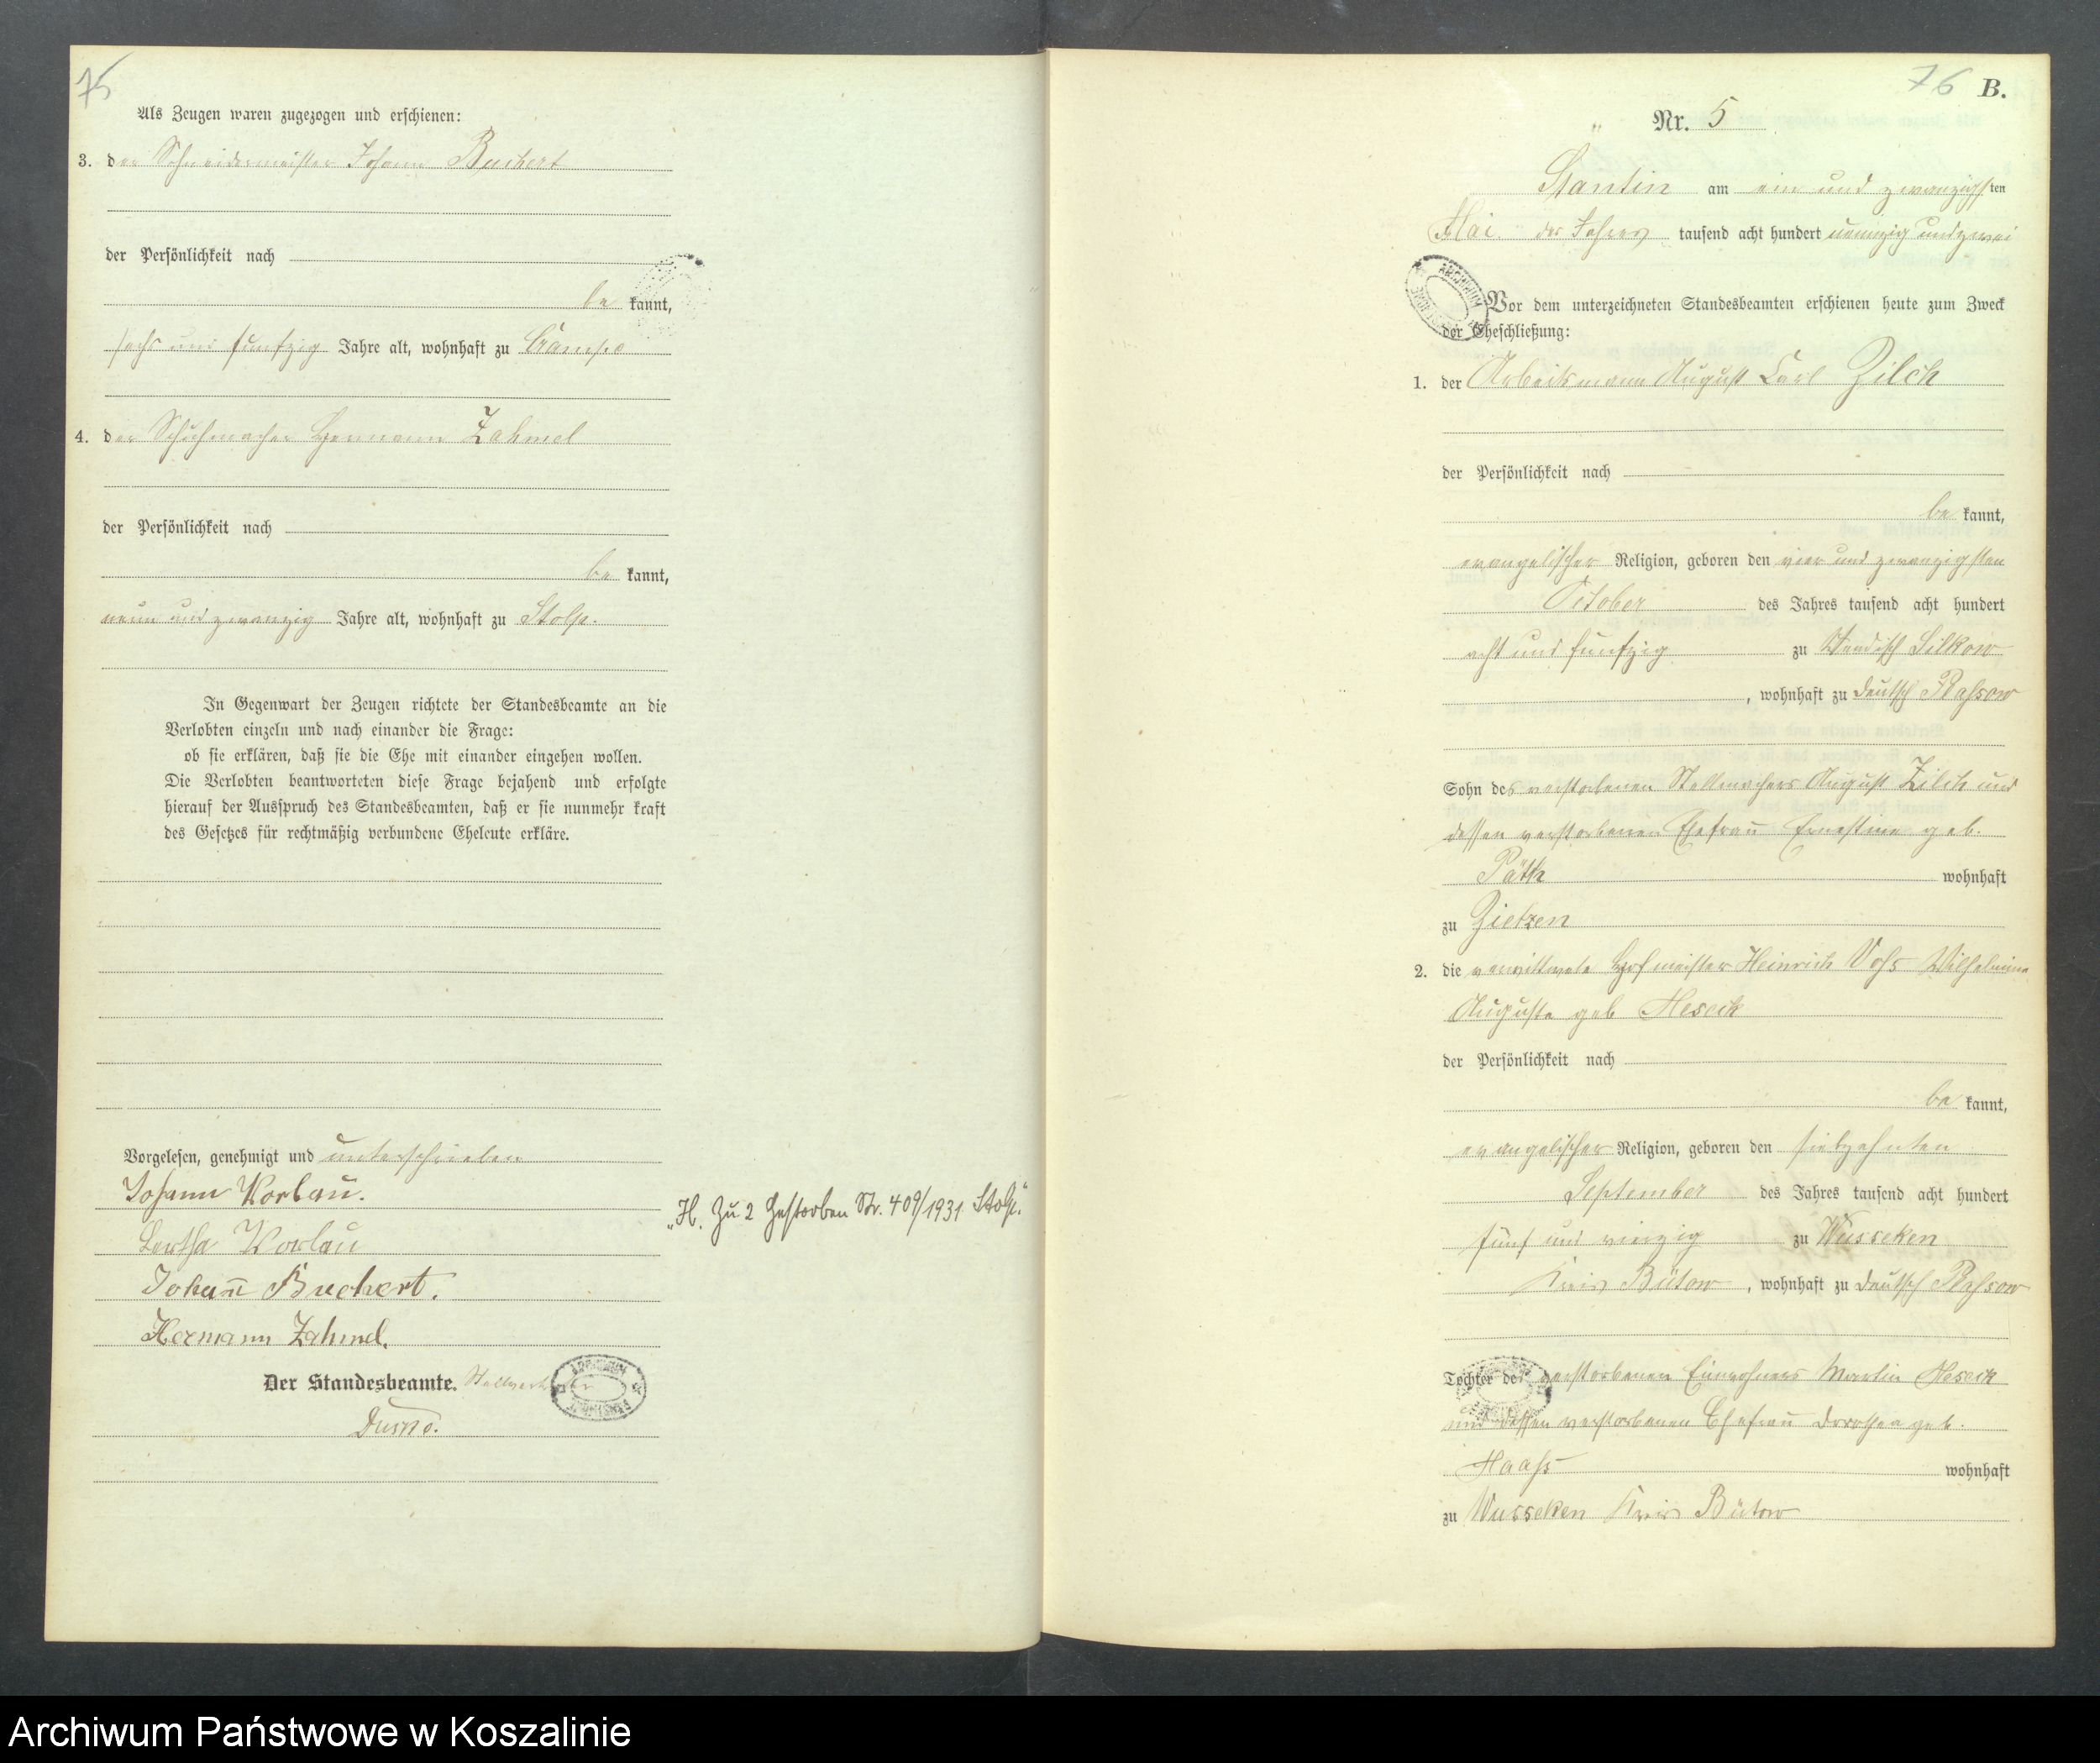 75
Als Zeugen waren zugezogen und erschienen:
3. der Schneidermeister Johann Buchert
der Persönlichkeit nach
be kannt,
sechs und fünfzig Jahre alt, wohnhaft zu Crampe
4. der Schuhmacher Hermann Zahmel
der Persönlichkeit nach
be kannt,
neun und zwanzig Jahre alt, wohnhaft zu Stolp.
In Gegenwart der Zeugen richtete der Standesbeamte an die
Verlobten einzeln und nach einander die Frage:
ob sie erklären, daß sie die Ehe mit einander eingehen wollen.
Die Verlobten beantworteten diese Frage bejahend und erfolgte
hierauf der Ausspruch des Standesbeamten, daß er sie nunmehr kraft
des Gesetzes für rechtmäßig verbundene Eheleute erkläre.
Vorgelesen, genehmigt und unterschrieben
Johann Worlau.
Bertha Worlau
Johann Buchert.
Hermann Zahmel.
Der Standesbeamte.
„H. Zu 2 Gestorben Nr. 409/1931 Stolp.“
76 B.
Nr. 5
Stantin am ein und zwanzigsten
Mai des Jahres tausend acht hundert neunzig und zwei
Vor dem unterzeichneten Standesbeamten erschienen heute zum Zweck
der Eheschließung:
1. der Arbeitsmann August Carl Zilch
der Persönlichkeit nach
be kannt,
evangelischer Religion, geboren den vier und zwanzigsten
October des Jahres tausend acht hundert
acht und fünfzig zu Wendisch Silkow
, wohnhaft zu Deutsch Plassow
Sohn des verstorbenen Stellmachers August Zilch und
dessen verstorbenen Ehefrau Ernestine geb.
Päth wohnhaft
zu Zietzen
2. die verwittwete Hofmeister Heinrich Voss Wilhelmine
Auguste geb Heseck
der Persönlichkeit nach
be kannt,
evangelischer Religion, geboren den siebzehnten
September des Jahres tausend acht hundert
fünf und vierzig zu Wusseken
Kreis Bütow, wohnhaft zu Deutsch Plassow
Tochter des verstorbenen Einwohners Martin Heseck
und dessen verstorbenen Ehefrau Dorothea geb.
Haass wohnhaft
zu Wusseken Kreis Bütow
Archiwum Państwowe w Koszalinie